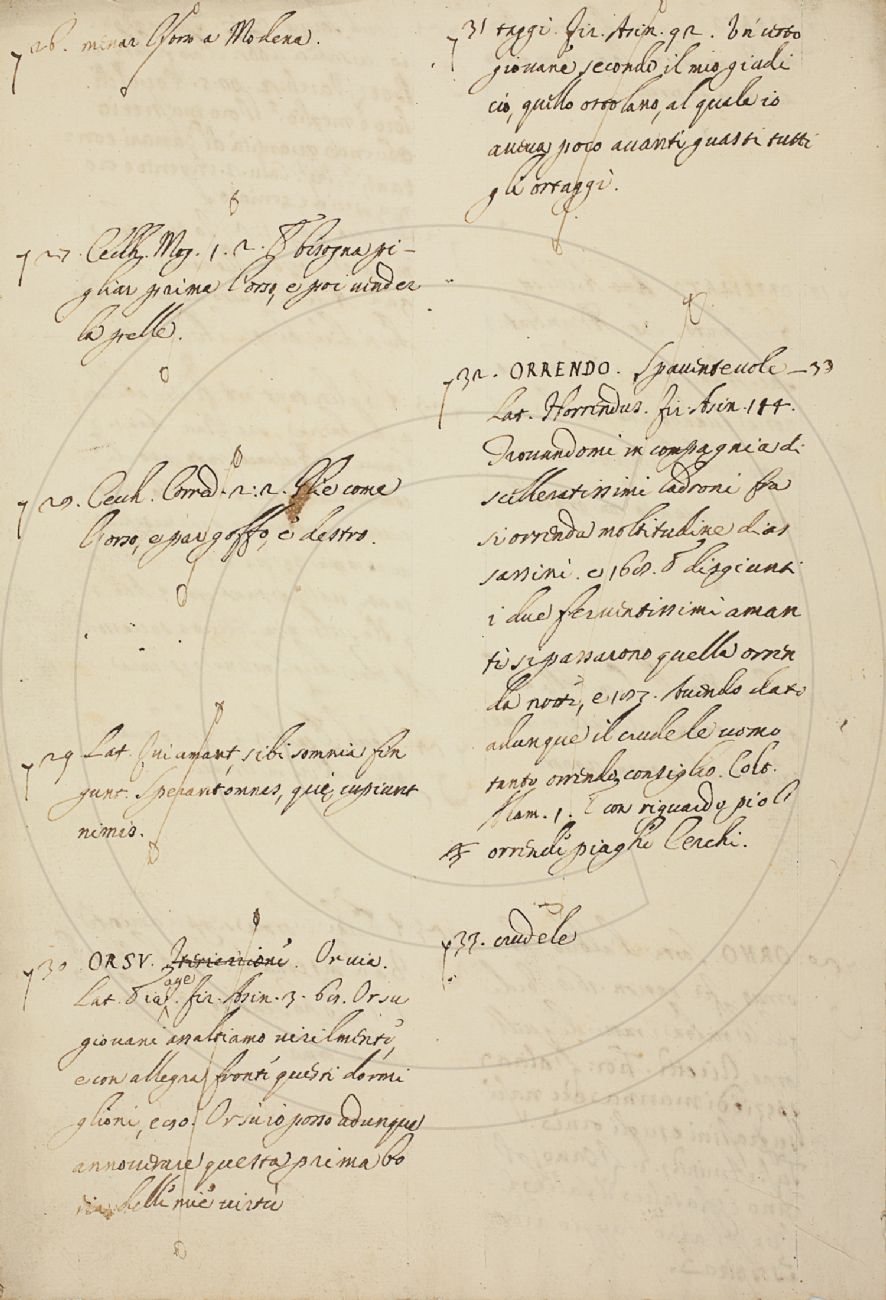 26. menar l'orso a Modena.
27. Cecch. Mog. 1. 2. E bisogna pi-
gliar prima l'orso, e poi vender
la pelle.
28. Cecch. Corred. 2. 2. Gli e come
l'orso, e par goffo, è destro.
29 Lat. Qui amant, sibi somnia fin
gunt. Sperant omnes, quę cupiunt
nimis.
30 ORSU. Orvia.
Lat. Eia age. fir. Asin. 3. 69. Orsu
giovani assaltiamo virilmente,
e con allegra fronte questi dormi
glioni, e 90. Orsu io posso adunque
annoverare questa prima lo
da delle mie virtù
31 taggi. fir. Asin. 92. Un certo
giovane secondo il mio giudi
cio, quello ortolano, al quale io
aveva poco avanti guasti tutti
gli ortaggi.
32. ORRENDO. Spaventevole – 33
Lat. Horrendus. fir. Asin. 144.
Trovandomi in compagnia di
scelleratissimi ladroni fra
si orrenda moltitudine d'as
sassini. e 168. E disgiunti
i due ferventissimi aman
ti si passarono quella orren
da notte, e 183. Avendo dato
adunque il crudele uomo
tanto orrendo consiglio. Colt.
Alam. 1. E con riguardo pio l'
orrendi piaghe cerchi.
33. crudele